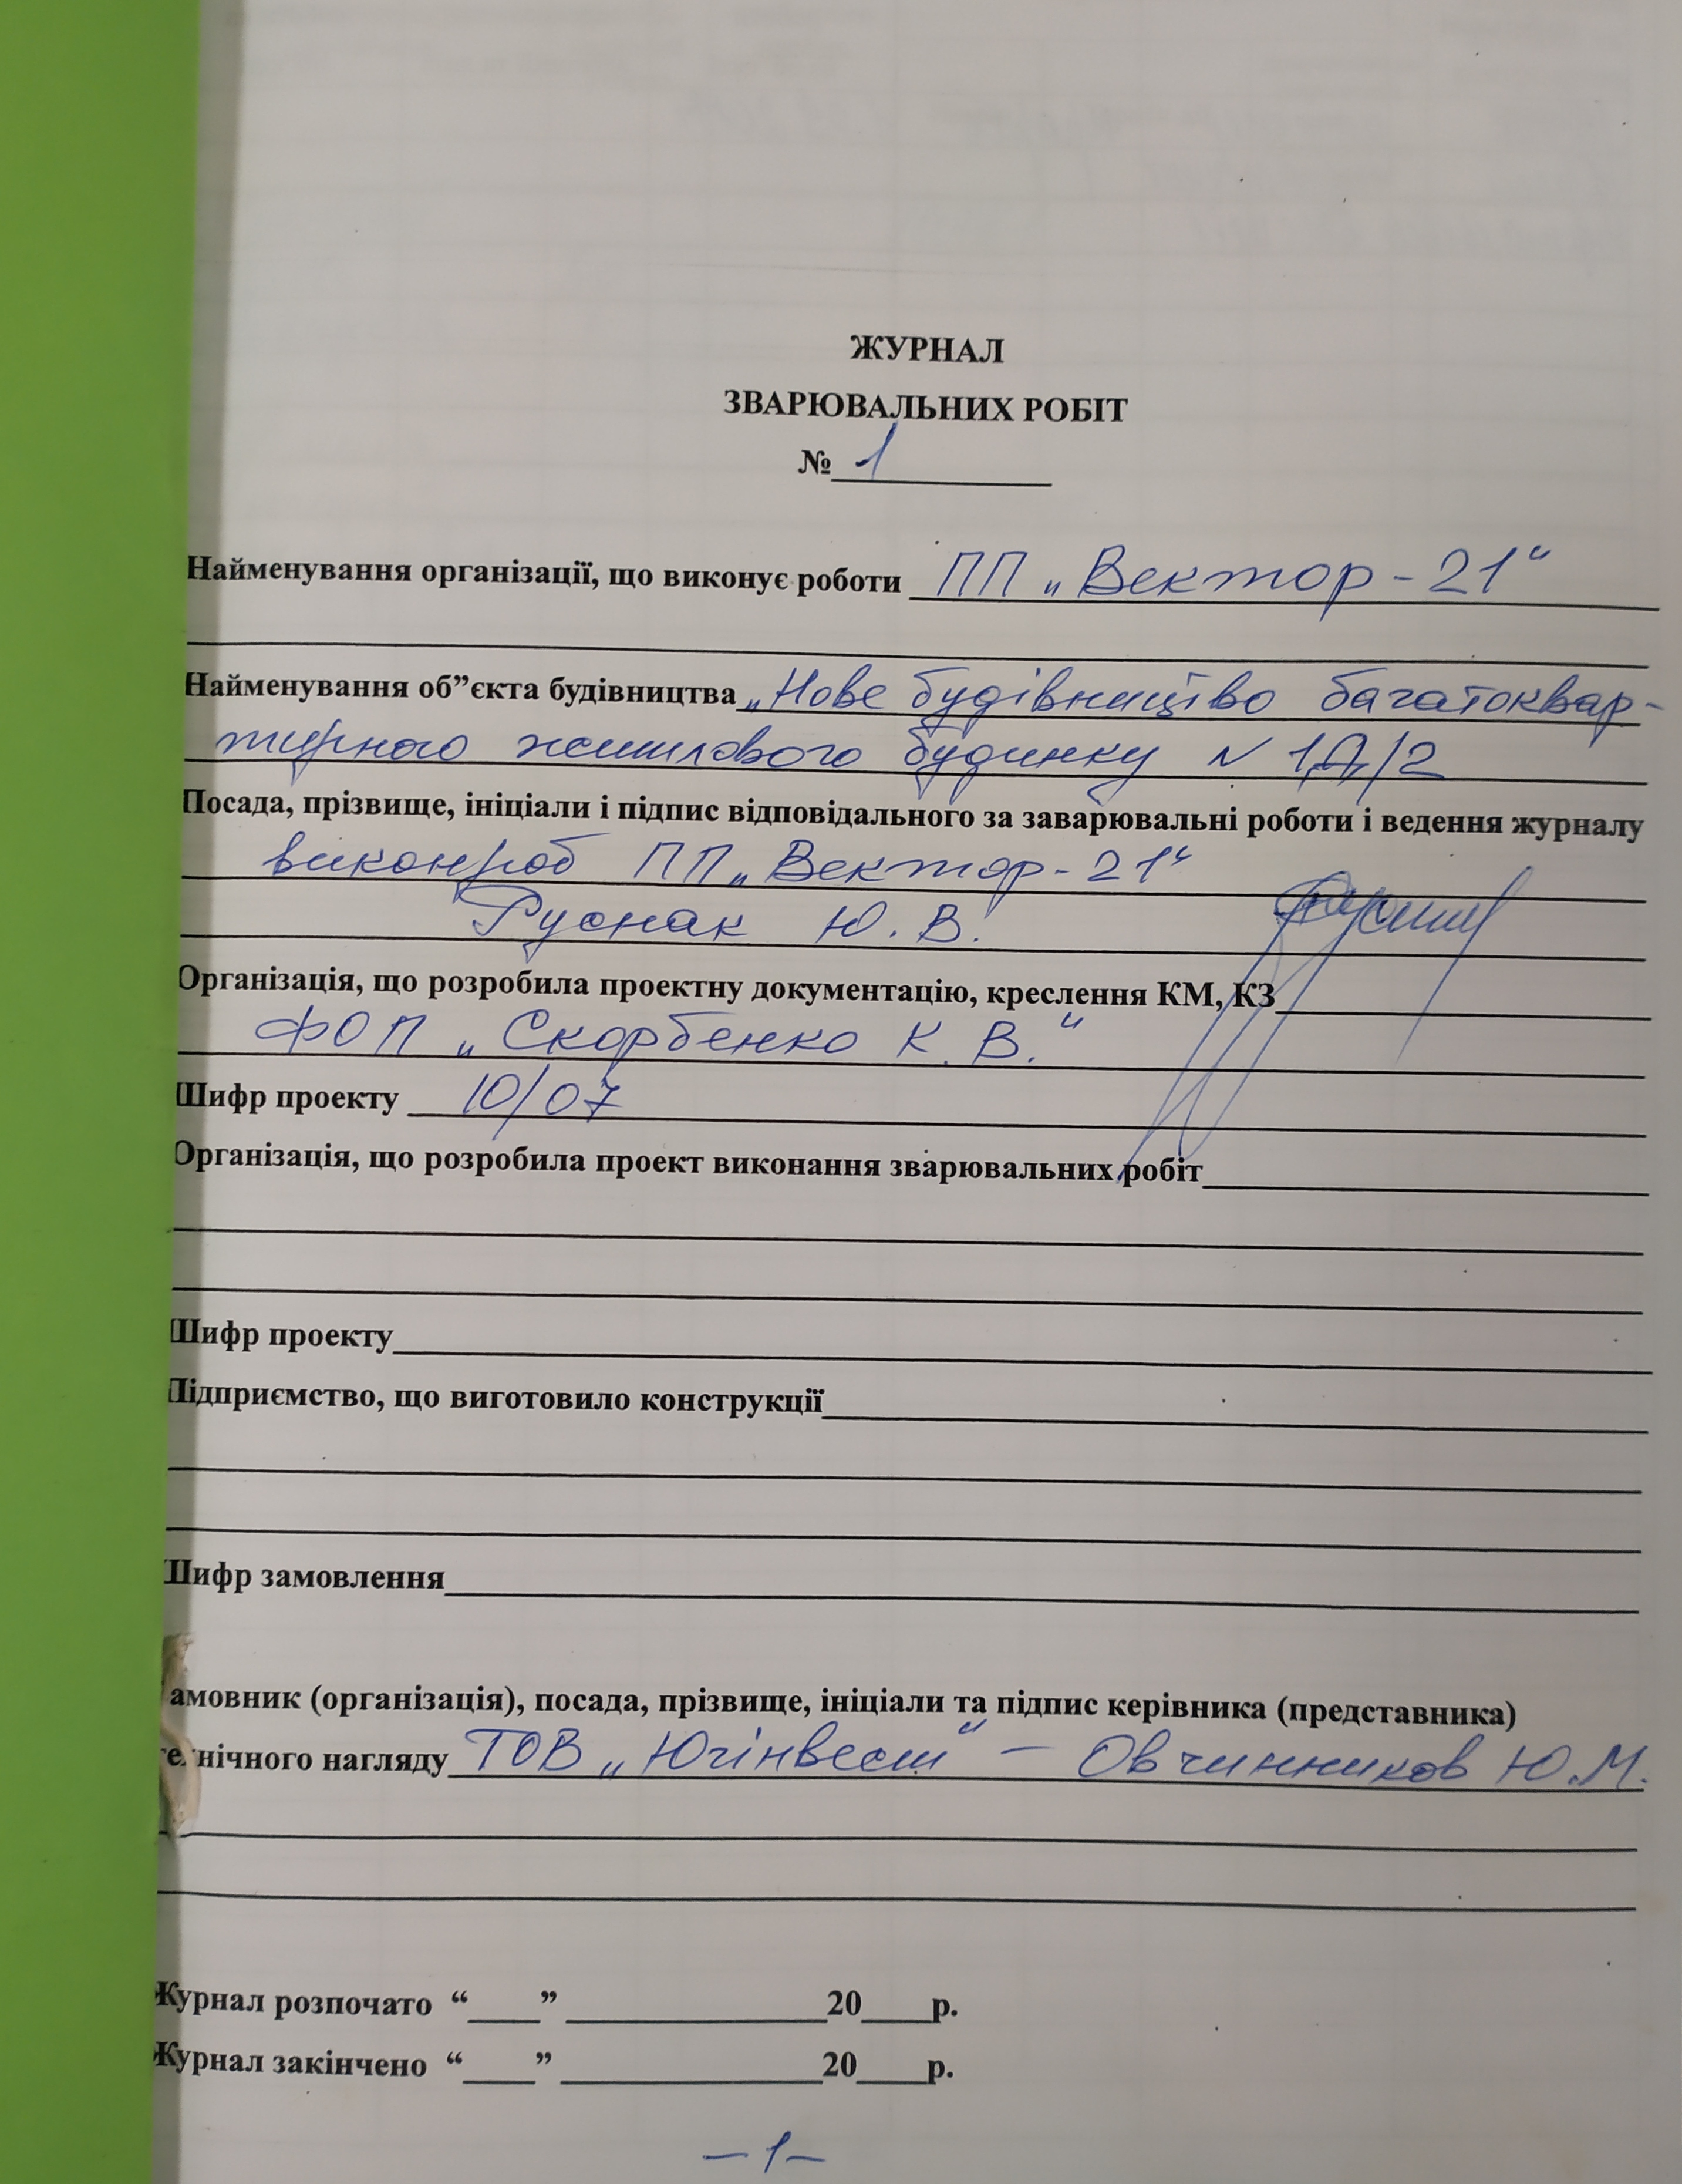 ЖУРНАЛ
ЗВАРЮВАЛЬНИХ РОБІТ
№ 1
Найменування організації, що виконує роботи ПП „Вектор-21“
Найменування об”єкта будівництва „Нове будівництво багатоквар-
тирного житлового будинку N 1Д/2
Посада, прізвище, ініціали і підпис відповідального за заварювальні роботи і ведення журналу
виконроб ПП „Вектор-21“
Руснак Ю. В.
Організація, що розробила проектну документацію, креслення КМ, КЗ
ФОП „Скорбенко К. В.“
Шифр проекту 10/07
Організація, що розробила проект виконання зварювальних робіт
Шифр проекту
Підприємство, що виготовило конструкції
Шифр замовлення
амовник (організація), посада, прізвище, ініціали та підпис керівника (представника)
технічного нагляду ТОВ „Югінвест“ – Овчинников Ю.М.
Журнал розпочато “____” ______________20____р.
Журнал закінчено “____” ______________20____р.
– 1 –